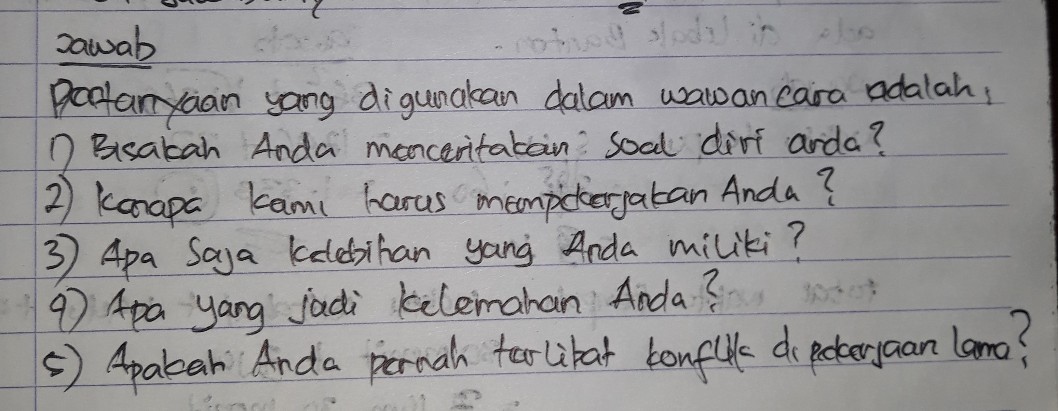 Jawab
Pertanyaan yang digunakan dalam wawancara adalah:
1) Bisakah Anda menceritakan soal diri anda?
2) Kenapa kami harus mempekerjakan Anda?
3) Apa Saja kelebihan yang Anda miliki?
4) Apa yang jadi kelemahan Anda?
5) Apakah Anda pernah terlibat konflik di pekerjaan lama?